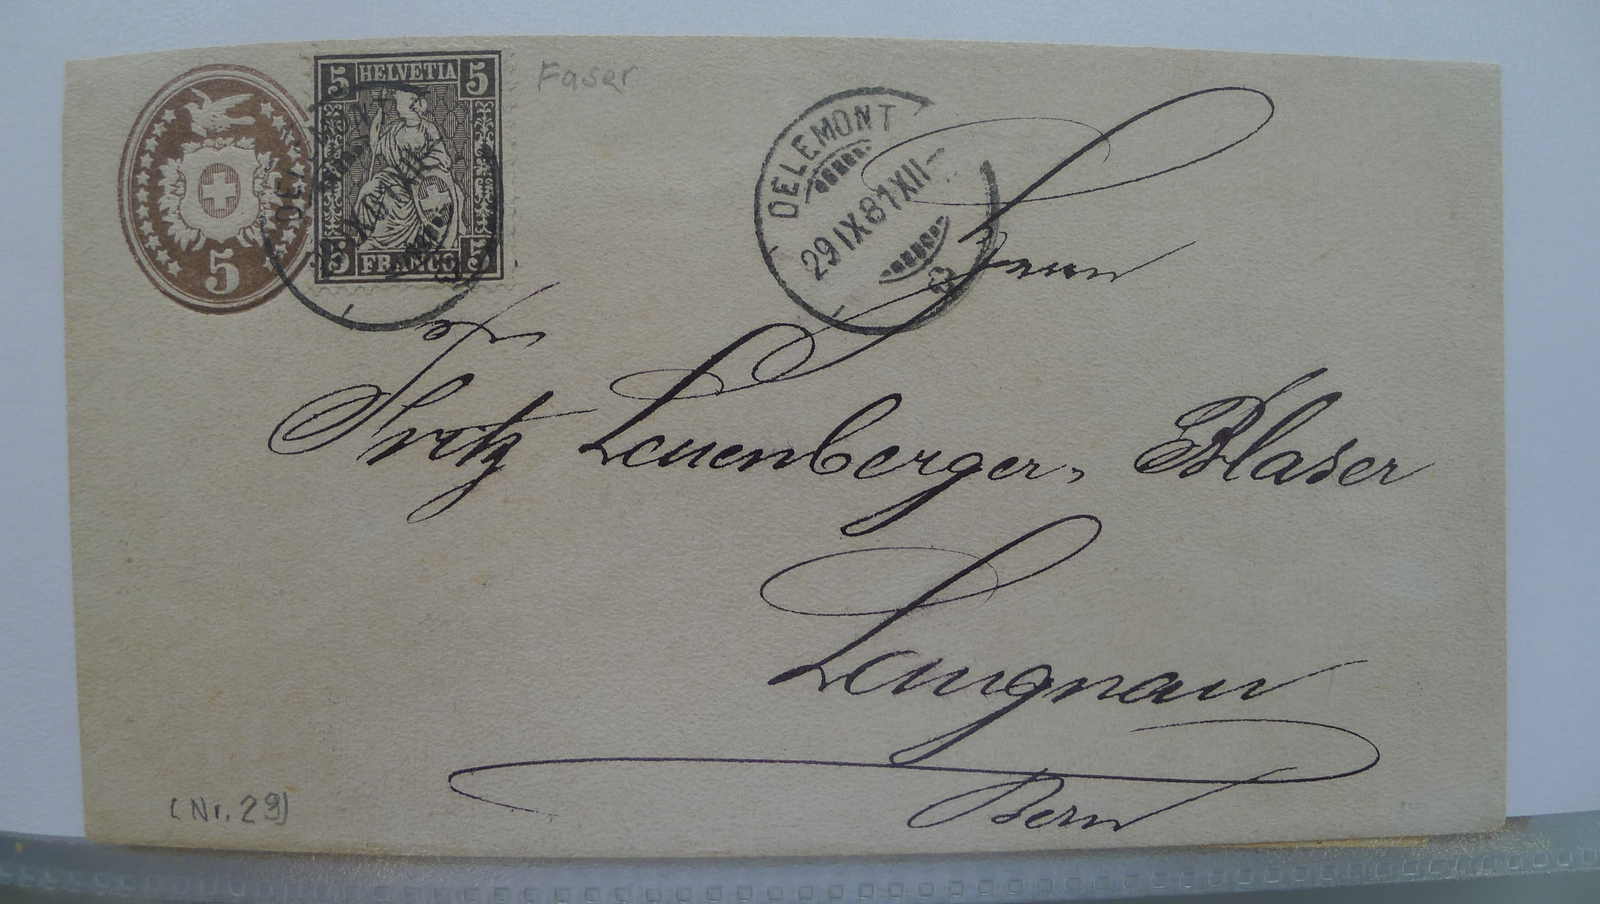 5 HELVETIA 5
Faser
5
5 FRANCO 5
DELEMONT
29 IX 81 XII-
Herrn
Fritz Leuenberger, Blaser
Langnau
Bern
(Nr. 29)